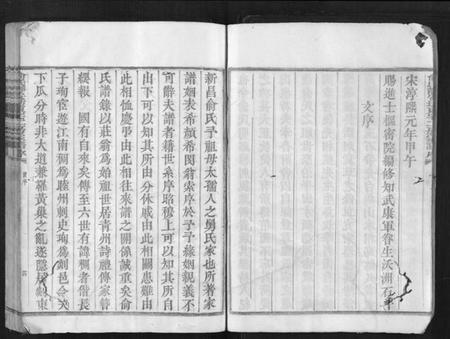 宋淳熙元年甲午
賜進士樞密院編修知武康軍眷生沃洲石
文序
新昌俞氏予祖母太孺人之舅氏家也所著家
譜姻表希顏希閔偕索序於予予緣姻親義不
可辭夫譜者籍世系序昭穆上可以知其所自
由下可以知其所由分休戚由此相關患難由
此相恤慶弔由此相往來譜之關係誠重矣俞
氏譜錄以莊翁為始祖世居青州詩禮傳家簪
纓報國有自來矣傳至六世有諱稠者偕長
子珣宦遊江南稠為睦州刺史珣為剡邑令天
下瓜分時非大道兼罹黃巢之亂遂隱居剡東